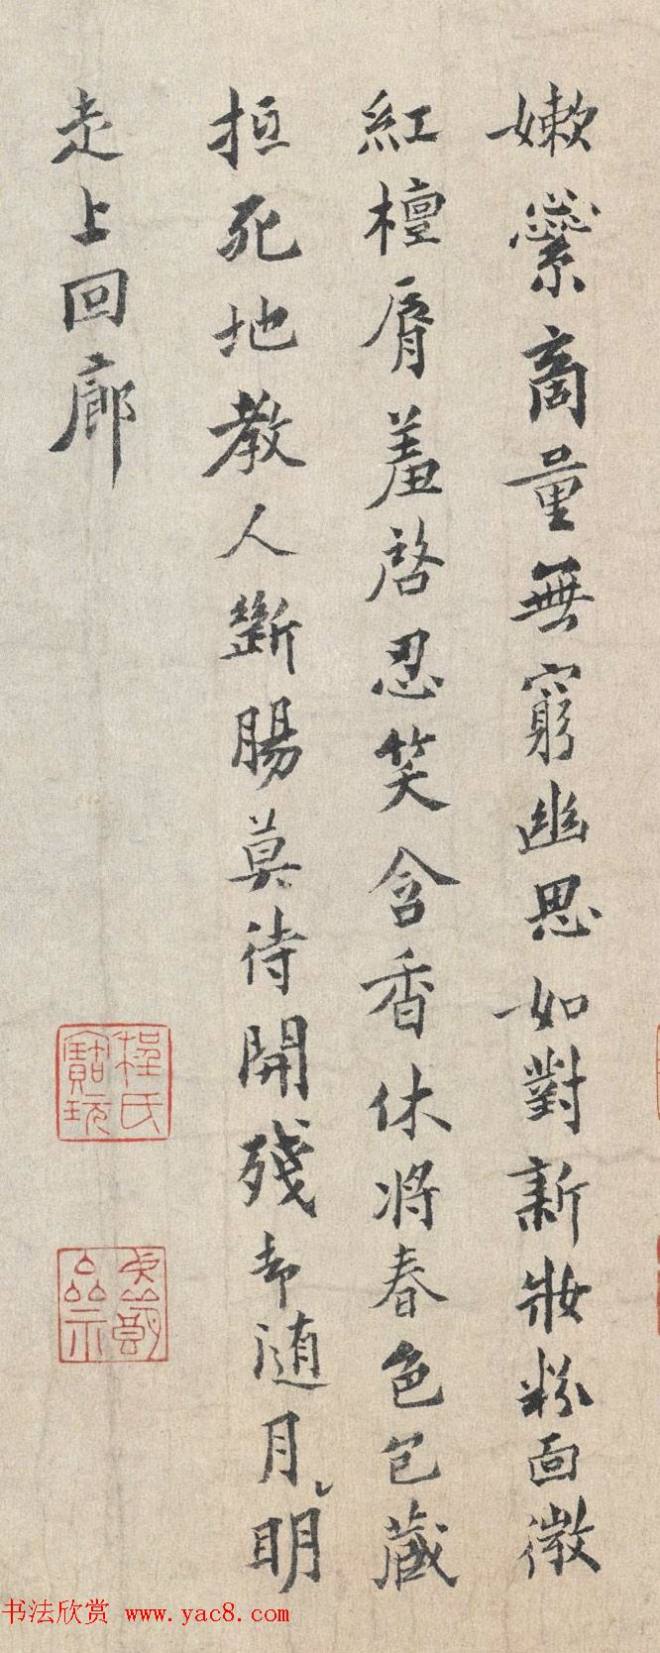 嫩蘂商量無窮幽思如對新妝粉面微
紅檀脣羞啓忍笑含香休將春色包藏
抵死地教人斷腸莫待開殘却随月明
走上回廊
程氏寶玩
书法欣赏 www.yac8.com